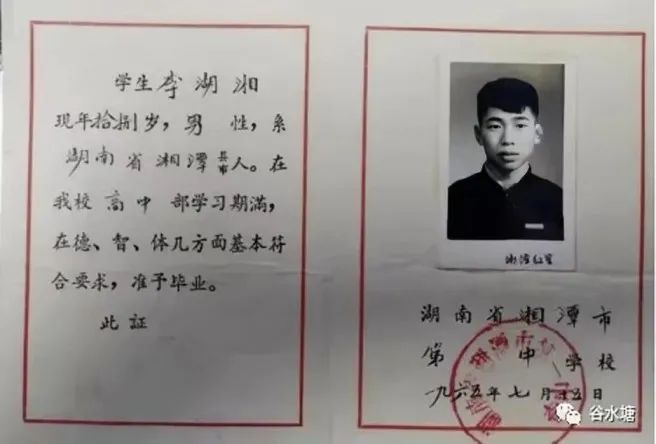 学生李湖湘
现年拾捌岁，男 性，系
湖南省湘潭县市人。在
我校 高中 部学习期满，
在德、智、体几方面基本符
合要求，准予毕业。
此证
湘潭红星
湖南省湘潭市
第 中 学校
一九六五年七月十五日
谷水塘